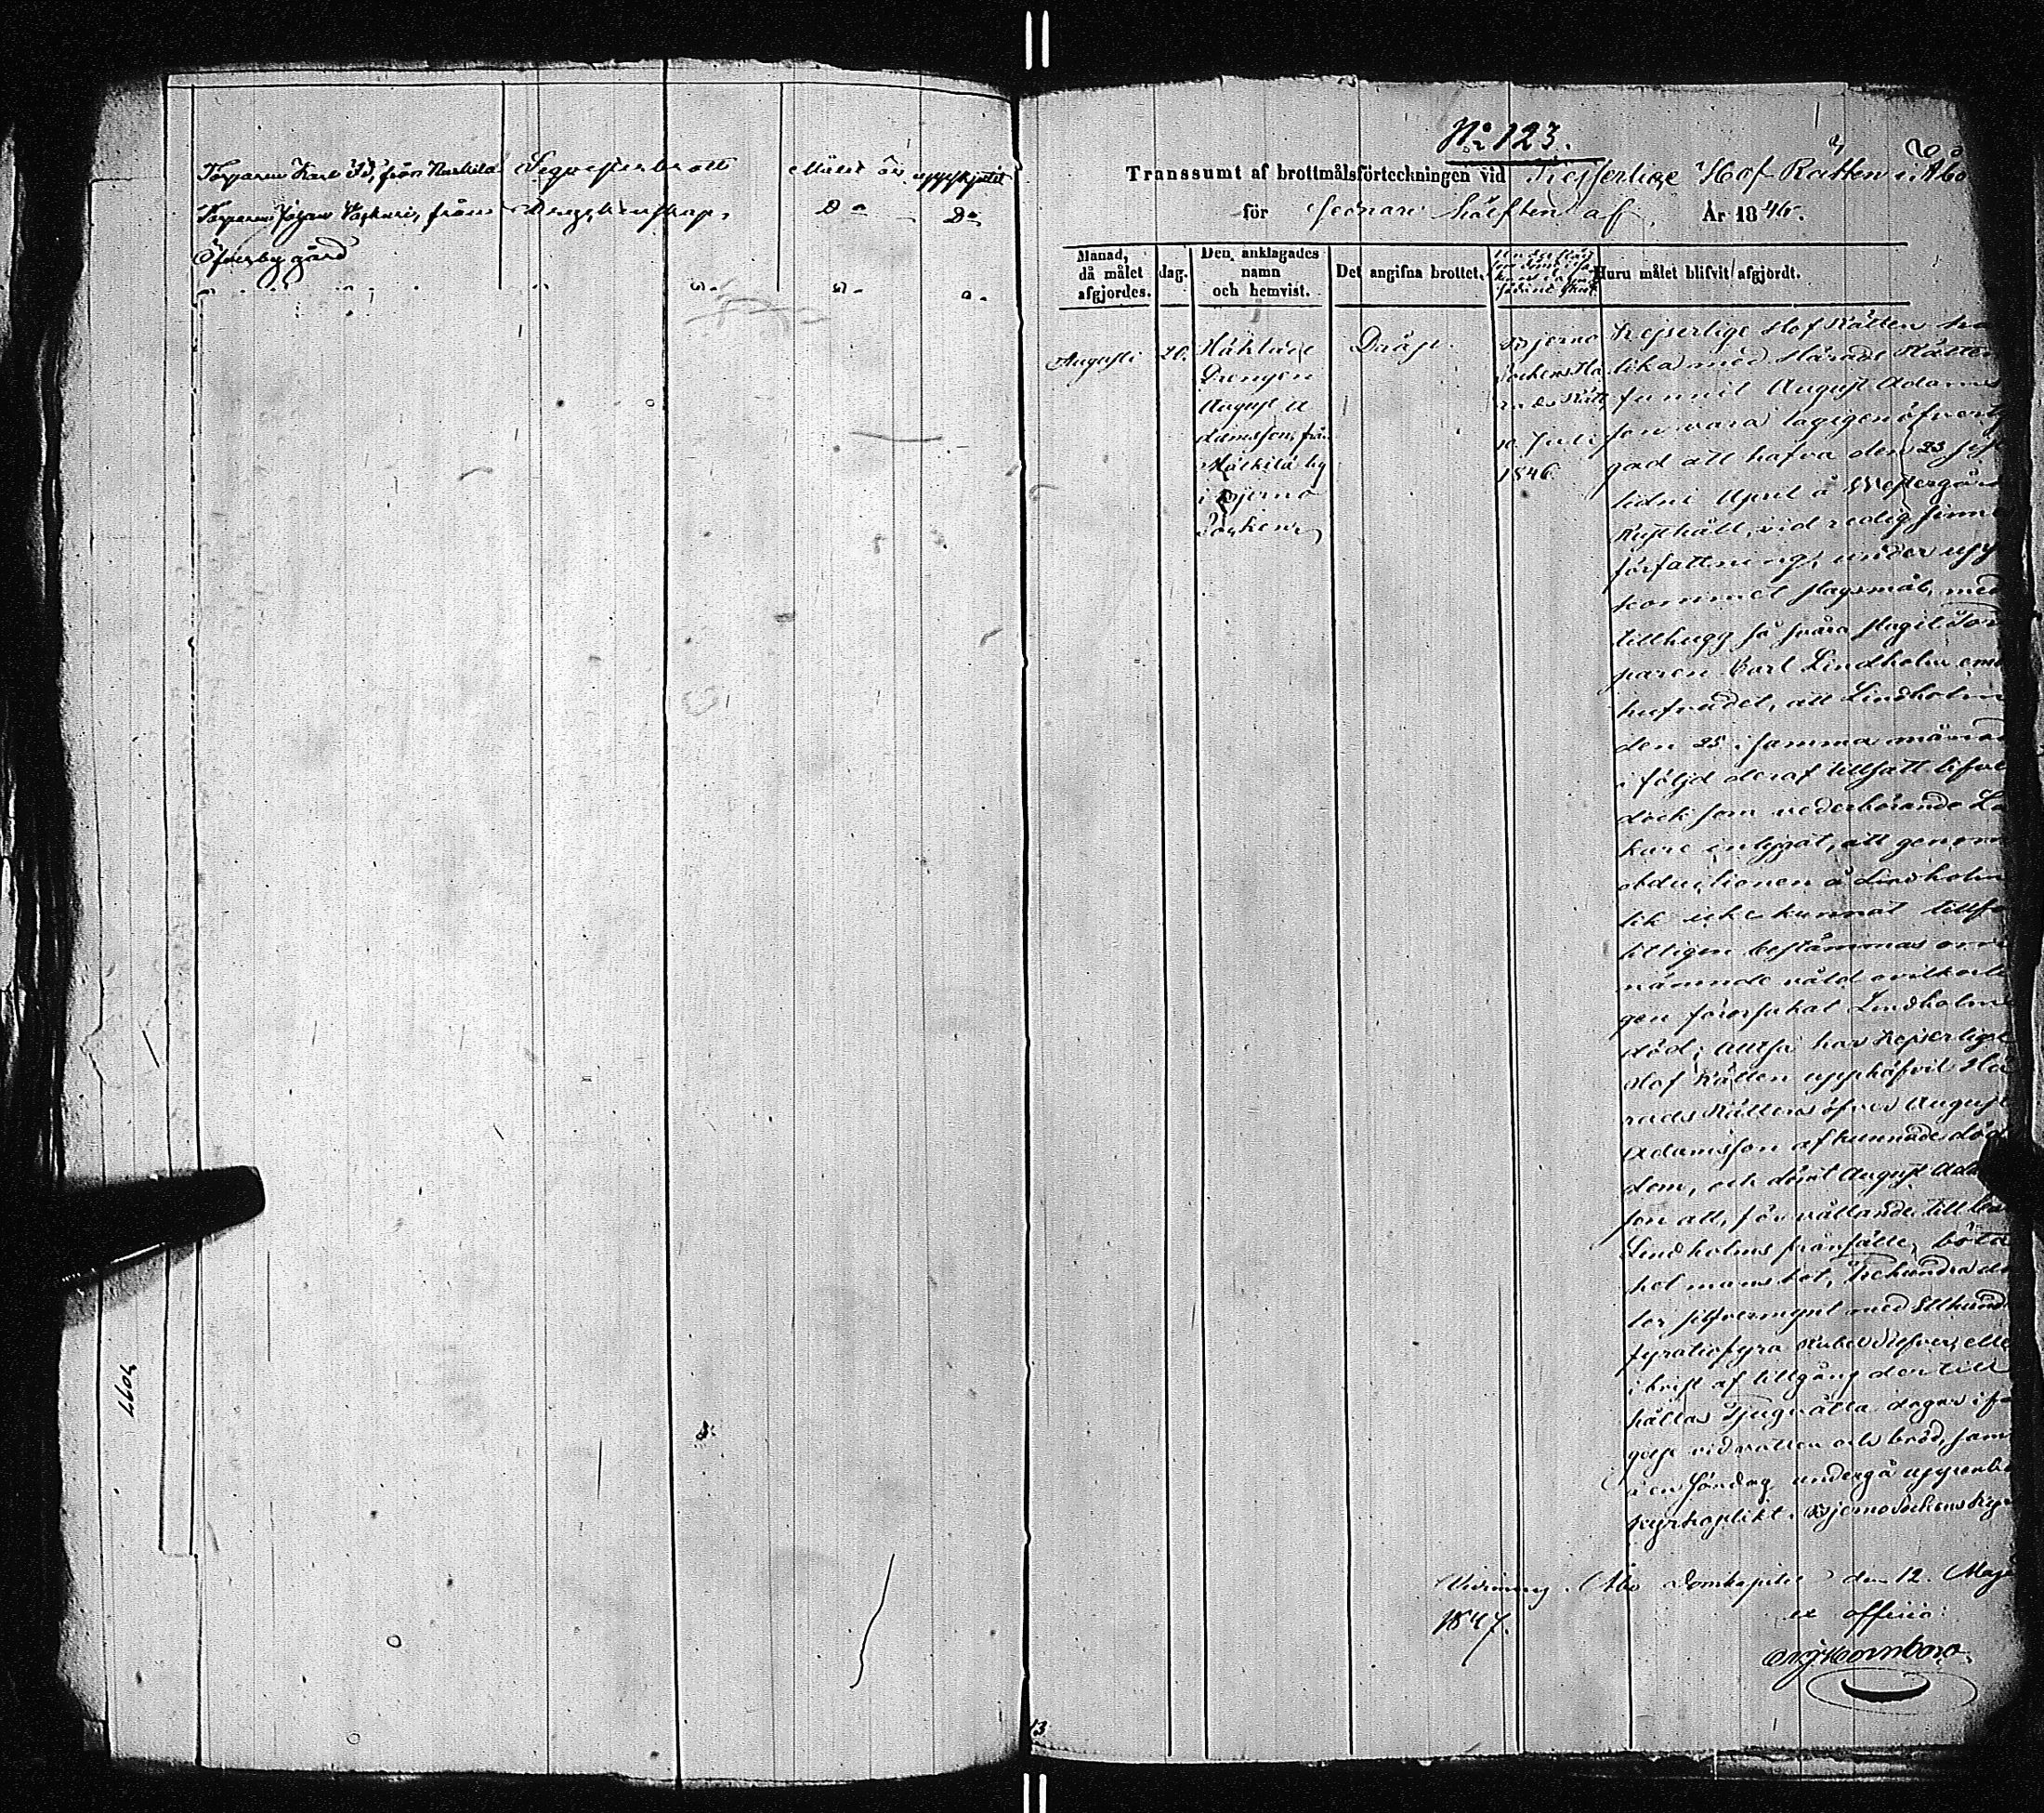 Torparen Karl Id, från Norkila Sequesterbrott Målet är uppskjutit
Torparen Johan från Dryckenskap, Do Do
Öfverby gård
No 123.
Transsumt af brottmålsförteckningen vid Kejserlige Hof Rätten i Åbo
för sednare hälften af År 1846.
Månad, då målet afgjordes.
dag.
Den anklagades namn och hemvist.
Det angifna brottet.
Huru målet blifvit afgjordt.
Augusti
20.
Häktade
Drengen
August A
damsson, från
by
i Bjerno
Socken,
Dråp.
Bjerno
Sockens Hä
rads Rätt
10 Juli
1846
Kejserlige Hof Rätten ha
lika med Härads Rätten
funnit August Adams
son vara lagligen öfverty
gad att hafva den 23 sist
lidne April å Westergård
Rusthåll, vid redig sinnes
författning, under upp
kommet slagsmål, med
tillhugg så svåra slagit Tor
paren Carl Lindholm em
hufvudet, att Lindholm
den 25 i samma månad
i följd deraf tillsatt lifvet
dock som vederbörande Lä
kare intygat, att genom
obductionen å Lindholms
lik icke kunnat tillför
litligen bestämmas om
nämnde våld ovilkorli
gen förorsakat Lindholms
död; Alltså har Kejserlige
Hof Rätten upphäfvit Hä
rads Rättens öfver August
Adamsson afkunnade döds
dom, och dömt August Adams
son att, för vållande till
Lindholms frånfälle, böta
hel mansbot, Trehundra da
ler silfvermynt med Etthundra
fyratiofyra Rubel Silfver, eller
i brist af tillgång dertill
hållas Tjuguåtta dagar i fän
gelse vid vatten och bröd, samt
en Söndag undergå uppenbar
kyrkoplikt i Bjerno Sockens Kyr
Vidimeras. Åbo Domkapitel den 12. Maji
1847.
ex officio:
13